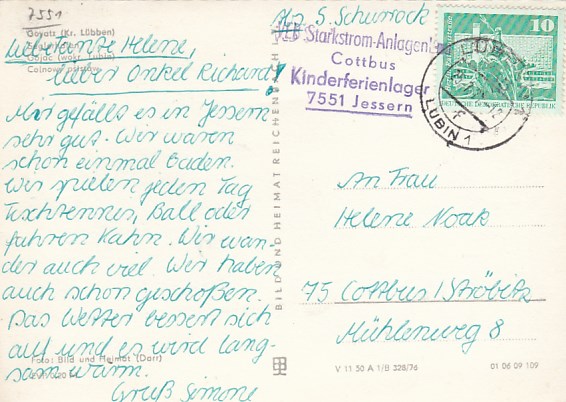 7551
Goyatz (Kr. Lübben)
Liebe Tante Helene,
lieber Onkel Richard!
Mir gefällt es in Jessern
sehr gut. Wir waren
schon einmal baden.
Wir spielen jeden Tag
Tischtennis, Ball oder
fahren Kahn. Wir wan-
der auch viel. Wir haben
auch schon geschoßen.
Das Wetter bessert sich
auf und es wird lang-
sam warm.
Gruß Simone
Foto: Bild und Heimat (Darr)
BILD UND HEIMAT REICHENBACH
Abs. S. Schurrock
VEB Starkstrom-Anlagenbau
Cottbus
Kinderferienlager
7551 Jessern
10
DEUTSCHE DEMOKRATISCHE REPUBLIK
LÜBBEN 1
An Frau
Helene Noak
75 Cottbus / Ströbitz
Mühlenweg 8
V 11 50 A 1/B 328/76
01 06 09 109